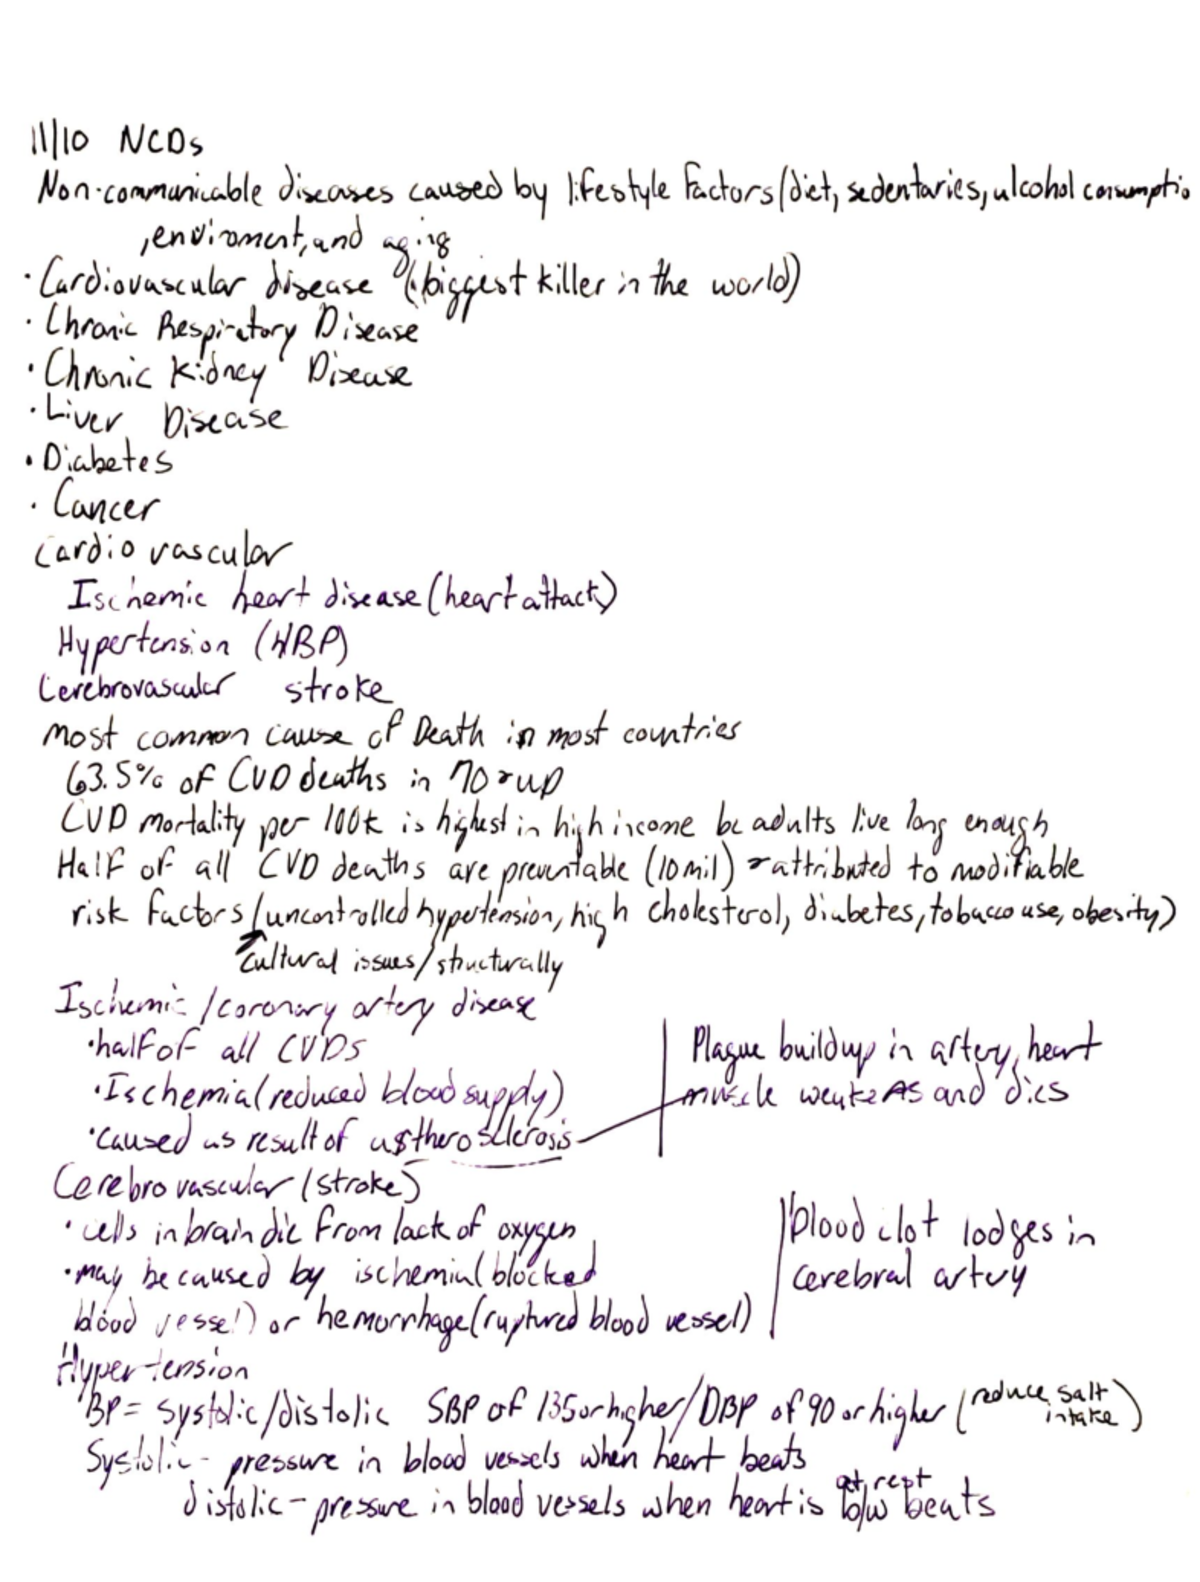 11/10 NCDs
Non-communicable diseases caused by lifestyle factors (diet, sedentaries, alcohol consumptio
, enviroment, and aging
· Cardiovascular disease (biggest killer in the world)
· Chronic Respiratory Disease
· Chronic Kidney Disease
· Liver Disease
· Diabetes
· Cancer
Cardiovascular
Ischemic heart disease (heart attack)
Hypertension (HBP)
Cerebrovascular stroke
most common cause of Death in most countries
63.5% of CVD deaths in 70 & up
CVD mortality per 100k is highest in high income bc adults live long enough
Half of all CVD deaths are preventable (10 mil) & attributed to modifiable
risk factors (uncontrolled hypertension, high cholesterol, diabetes, tobacco use, obesity)
cultural issues/structurally
Ischemic/coronary artery disease
· half of all CVDs
· Ischemia (reduced blood supply)
· caused as result of astherosclerosis
Plague buildup in artery, heart
muscle weakens and dies
Cerebrovascular (stroke)
· cells in brain die from lack of oxygen
· may be caused by ischemia (blocked
blood vessel) or hemorrhage (ruptured blood vessel)
blood clot lodges in
cerebral artery
Hypertension
BP = systolic/distolic SBP of 135 or higher/DBP of 90 or higher (reduce salt intake)
Systolic - pressure in blood vessels when heart beats
distolic - pressure in blood vessels when heart is at rest b/w beats